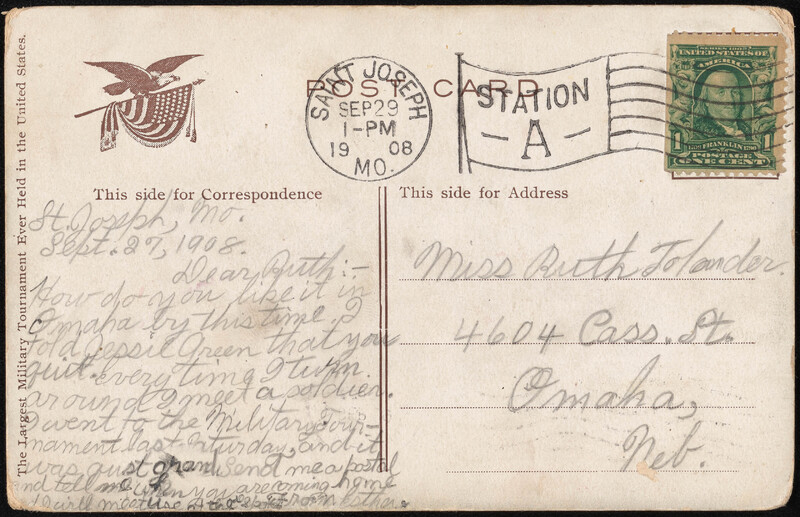 The Largest Military Tournament Ever Held in the United States.
POST CARD
SAINT JOSEPH
SEP 29
1-PM
1908
MO.
STATION
A
SERIES 1902
UNITED STATES OF
AMERICA
FRANKLIN 1790
POSTAGE
1 ONE CENT 1
This side for Correspondence
St. Joseph, Mo.
Sept. 27, 1908.
Dear Ruth:-
How do you like it in
Omaha by this time. I
told Jessie Green that you
quit. every time I turn
around I meet a soldier.
I went to the Military Tour-
nament last Saturday, and it
was just grand. Send me a postal
and tell me when you are coming home
I will meet
From Esther.
This side for Address
Miss Ruth Tolander.
4604 Cass. St.
Omaha,
Neb.